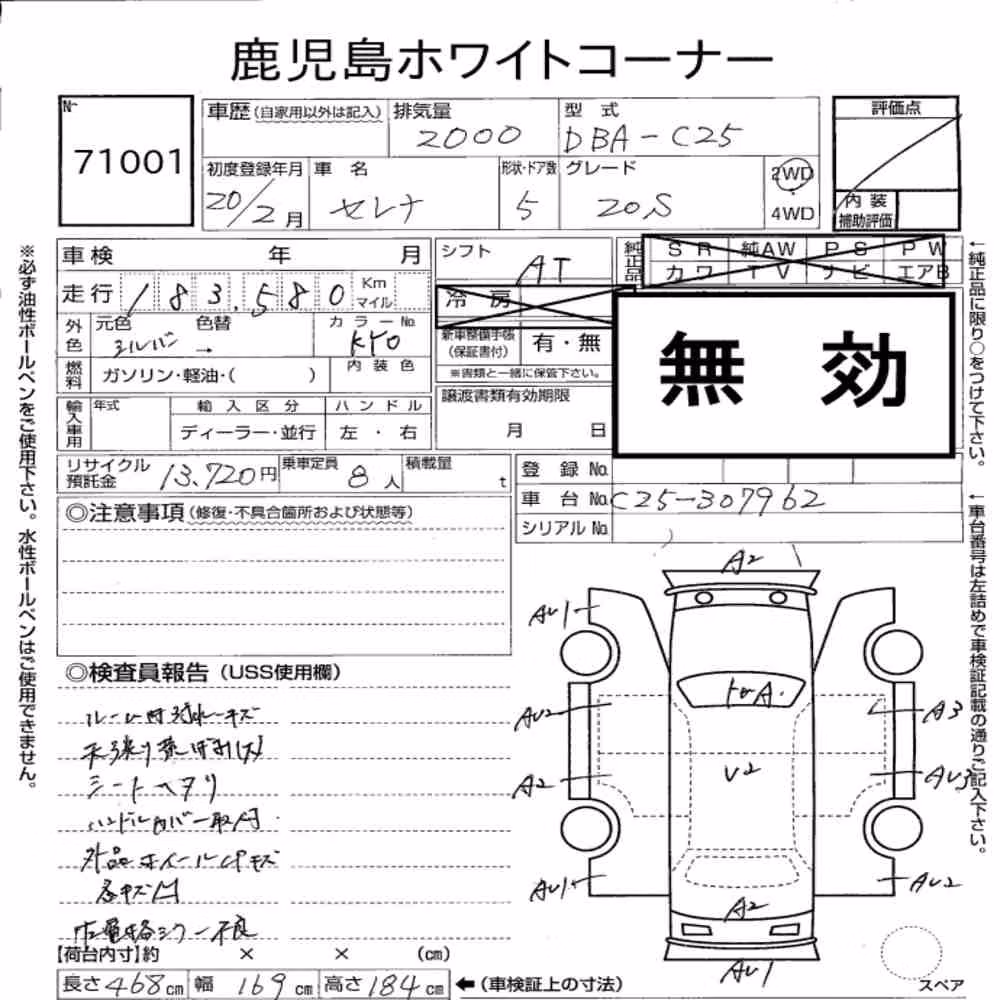 鹿児島ホワイトコーナー
No.
71001
車歴(自家用以外は記入) 排気量 2000 型式 DBA-C25
評価点
初度登録年月 20/2月 車名 セレナ 形状・ドア数 5 グレード 20S 2WD 4WD
内装補助評価
車検 年 月 シフト AT
純正品 SR 純AW PS PW
カワ TV ナビ エアB
走行 183,580 Km マイル
冷房
外色 元色 シルバー 色替 → カラーNo. KY0
新車整備手帳(保証書付) 有・無
※書類と一緒に保管下さい。
無効
燃料 ガソリン・軽油・( ) 内装色
輸入車用 年式 輸入区分 ディーラー・並行 ハンドル 左・右
譲渡書類有効期限 月 日
リサイクル預託金 13,720円 乗車定員 8人 積載量 t
登録No.
車台No. C25-307962
シリアルNo.
◎注意事項(修復・不具合箇所および状態等)
◎検査員報告(USS使用欄)
シートヘタリ
ハンドルカバー取付
外品ホイールCPキズ
【荷台内寸】約 × × (cm)
長さ468cm 幅169cm 高さ184cm ←(車検証上の寸法)
A2
AU1
AU2
A2
AU1
A3
AU3
AU2
U2
A2
AU1
スペア
※必ず油性ボールペンをご使用下さい。水性ボールペンはご使用できません。
←純正品に限り○をつけて下さい。
←車台番号は左詰めで車検証記載の通りご記入下さい。